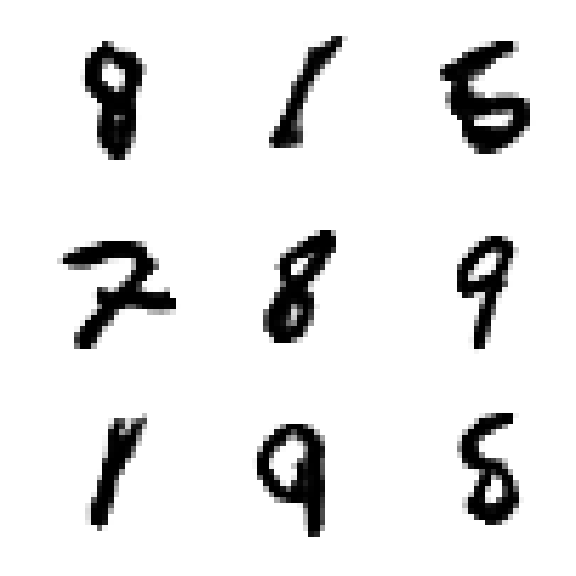 8 1 5
7 8 9
1 9 8